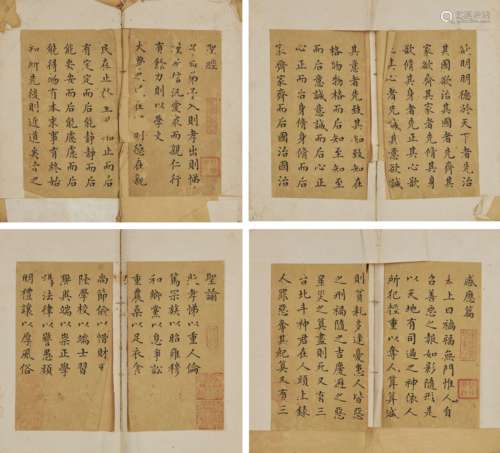 聖經
子曰弟子入則孝出則悌
謹而信汎愛眾而親仁行
有餘力則以學文
大學之道在明明德在親
民在止於至善知止而后
有定定而后能靜靜而后
能安安而后能慮慮而后
能得物有本末事有終始
知所先後則近道矣古之
欲明明德於天下者先治
其國欲治其國者先齊其
家欲齊其家者先脩其身
欲脩其身者先正其心欲
正其心者先誠其意欲誠
其意者先致其知致知在
格物物格而后知至知至
而后意誠意誠而后心正
心正而后身脩身脩而后
家齊家齊而后國治國治
聖諭
敦孝悌以重人倫
篤宗族以昭雍穆
和鄉黨以息爭訟
重農桑以足衣食
尚節儉以惜財用
隆學校以端士習
黜異端以崇正學
講法律以儆愚頑
明禮讓以厚風俗
感應篇
太上曰禍福無門惟人自
召善惡之報如影隨形是
以天地有司過之神依人
所犯輕重以奪人算算減
則貧耗多逢憂患人皆惡
之刑禍隨之吉慶避之惡
星災之算盡則死又有三
台北斗神君在人頭上錄
人罪惡奪其紀算又有三